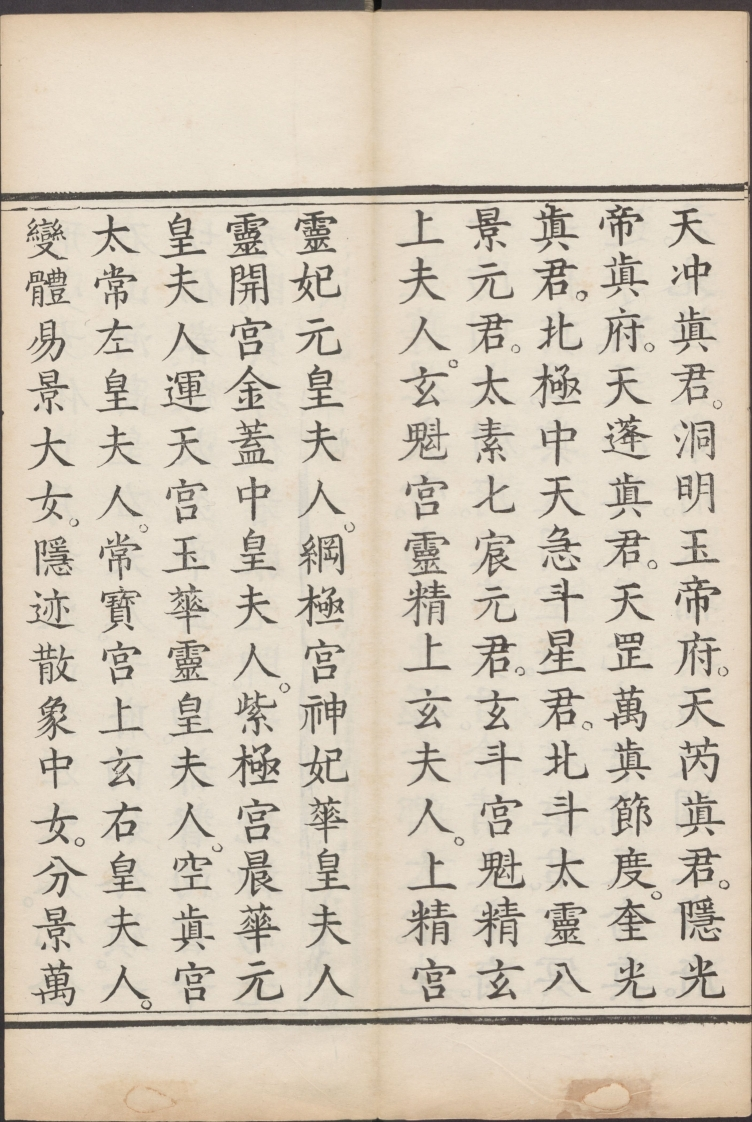 天冲眞君。洞明玉帝府。天芮眞君。隱光
帝眞府。天蓬眞君。天罡萬眞節度。奎光
眞君。北極中天急斗星君。北斗太靈八
景元君。太素七宸元君。玄斗宮魁精玄
上夫人。玄魁宮靈精上玄夫人。上精宮
靈妃元皇夫人。綱極宮神妃華皇夫人
靈開宮金蓋中皇夫人。紫極宮晨華元
皇夫人運天宮玉華靈皇夫人。空眞宮
太常左皇夫人。常寳宮上玄右皇夫人。
變體易景大女。隱迹散象中女。分景萬